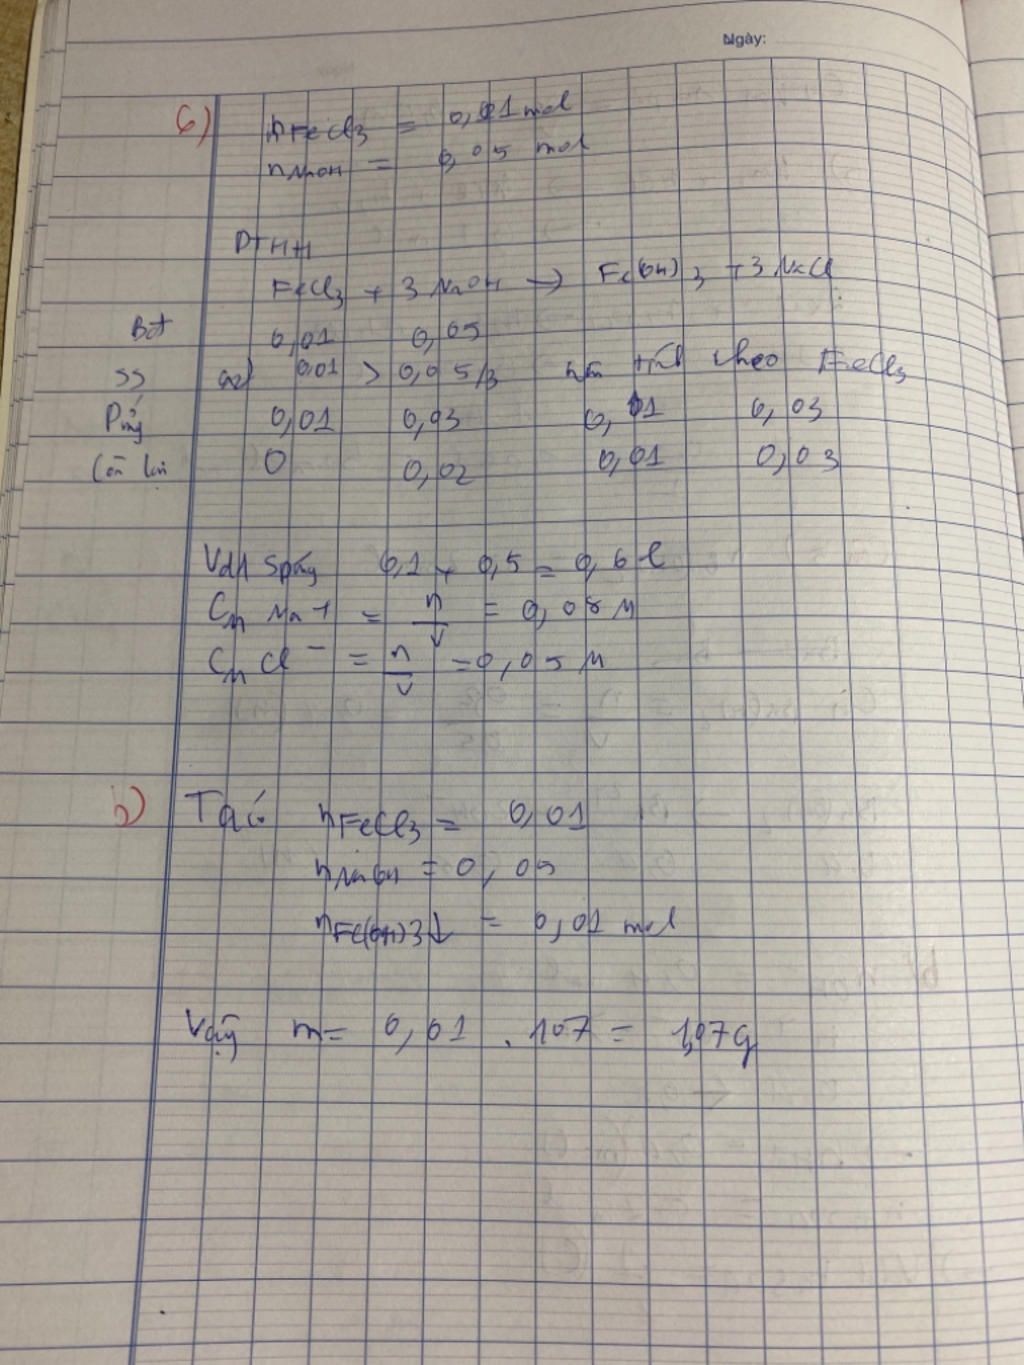 Ngày:
6) nFeCl3 = 0,01 mol
nNaOH = 0,05 mol
PTHH
FeCl3 + 3 NaOH → Fe(OH)3 + 3 NaCl
Bđ 0,01 0,05
SS 0,01 > 0,05/3 nên tính theo FeCl3
Pứng 0,01 0,03 0,01 0,03
Còn lại 0 0,02 0,01 0,03
Vdd Spứng 0,1 + 0,5 = 0,6 l
CM Na+ = n/V = 0,08 M
CM Cl- = n/V = 0,05 M
b) Ta có nFeCl3 = 0,01
nNaOH = 0,05
nFe(OH)3↓ = 0,01 mol
Vậy m = 0,01 . 107 = 1,07g